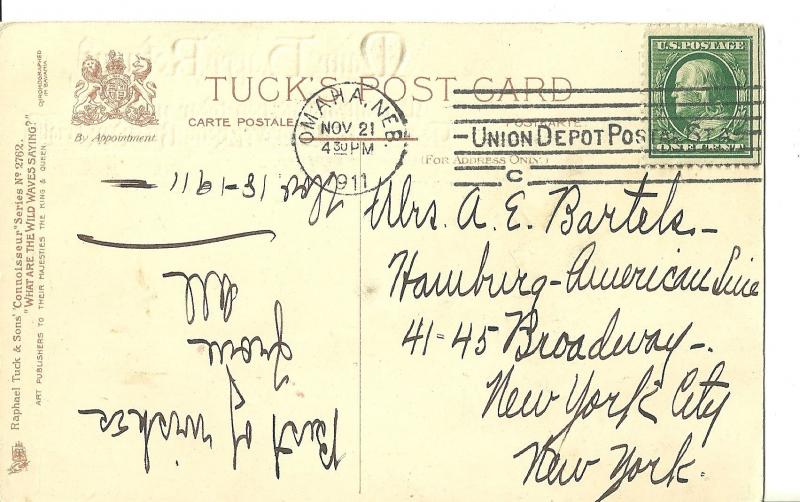 TUCK'S POST CARD
CARTE POSTALE
POSTKARTE
(FOR ADDRESS ONLY)
By Appointment.
Raphael Tuck & Sons' "Connoisseur" Series No 2762.
"WHAT ARE THE WILD WAVES SAYING?"
ART PUBLISHERS TO THEIR MAJESTIES THE KING & QUEEN.
CHROMOGRAPHED
IN BAVARIA
OMAHA, NEB.
NOV 21
430 PM
1911
UNION DEPOT POSTAL STA.
C
U.S. POSTAGE
ONE CENT
Nov 18-1911
Best of wishes
from
all
Mrs. A. E. Bartels-
Hamburg-American Line
41-45 Broadway-.
New York City
New York.